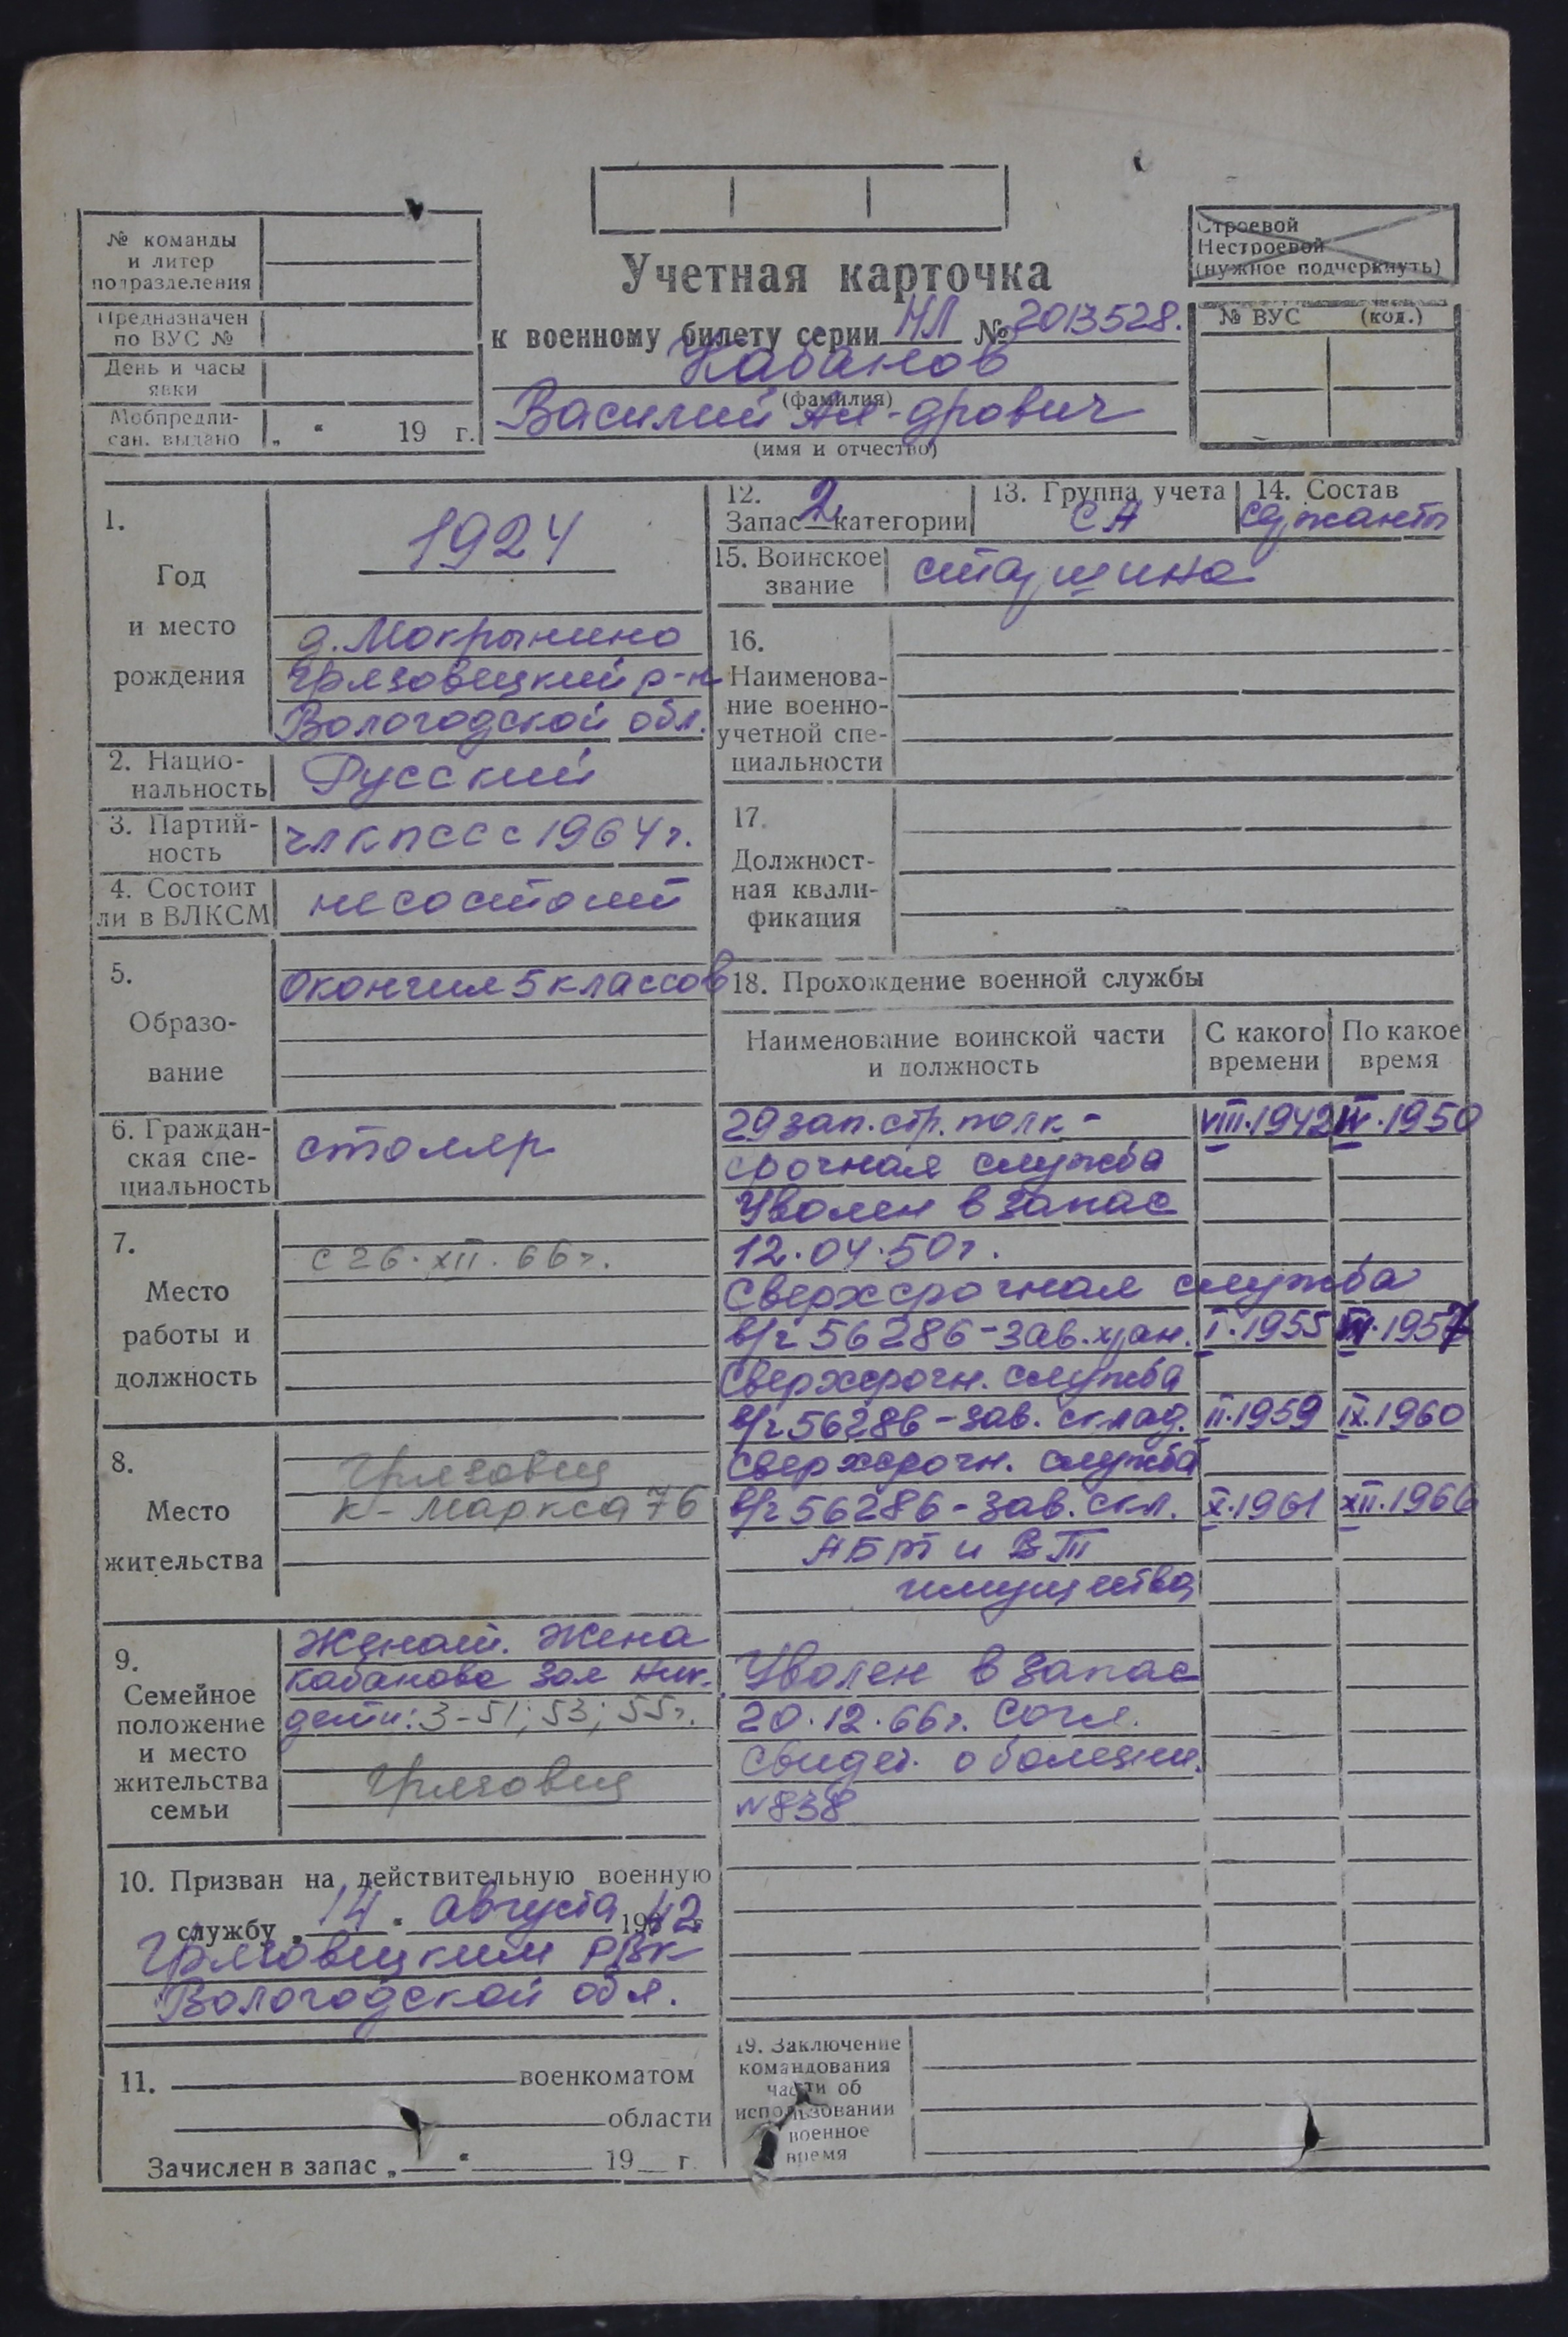 № команды
и литер
подразделения
Предназначен
по ВУС №
День и часы
явки
Мобпредпи-
сан. выдано „ “ 19 г.
Учетная карточка
к военному билету серии НЛ № 2013528.
Кабанов
(фамилия)
Василий Ал-дрович
(имя и отчество)
Строевой
Нестроевой
(нужное подчеркнуть)
№ ВУС (код.)
1.
Год
и место
рождения
1924
д. Мокрынино
Грязовецкий р-н
Вологодской обл.
2. Нацио-
нальность
Русский
3. Партий-
ность
чл КПСС с 1964 г.
4. Состоит
ли в ВЛКСМ
не состоит
5.
Образо-
вание
Окончил 5 классов
6. Граждан-
ская спе-
циальность
столяр
7.
Место
работы и
должность
с 26.XII.66 г.
8.
Место
жительства
Грязовец
К-Маркса 76
9.
Семейное
положение
и место
жительства
семьи
Женат. Жена
Кабанова Зоя Ник.
дети: 3-51; 53; 55 г.
Грязовец
10. Призван на действительную военную
службу „ 14 “ августа 1942
Грязовецким РВК
Вологодской обл.
11. военкоматом
области
Зачислен в запас „ “ 19 г.
12.
Запас 2 категории
13. Группа учета
СА
14. Состав
сержанты
15. Воинское
звание
старшина
16.
Наименова-
ние военно-
учетной спе-
циальности
17.
Должност-
ная квали-
фикация
18. Прохождение военной службы
Наименование воинской части
и должность
С какого
времени
По какое
время
29 зап. стр. полк - VIII.1942 IV.1950
срочная служба
Уволен в запас
12.04.50 г.
Сверхсрочная служба
в/ч 56286 - зав. хран. I.1955 1957
Сверхсрочн. служба
в/ч 56286 - зав. склад. II.1959 IX.1960
Сверхсрочн. служба
в/ч 56286 - зав. скл. X.1961 XII.1966
АБТ и ВТ
имущества
Уволен в запас
20.12.66 г. согл.
свидет. о болезни.
№ 838
19. Заключение
командования
части об
использовании
военное
время